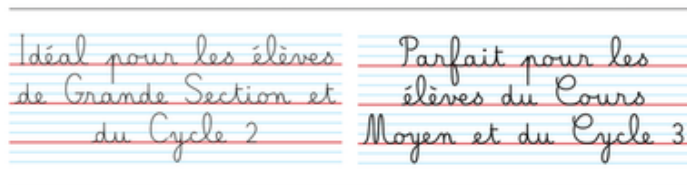 Idéal pour les élèves
de Grande Section et
du Cycle 2
Parfait pour les
élèves du Cours
Moyen et du Cycle 3